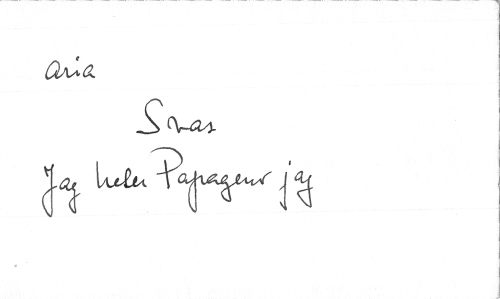 aria
Svas
Jag heter Papageno jag